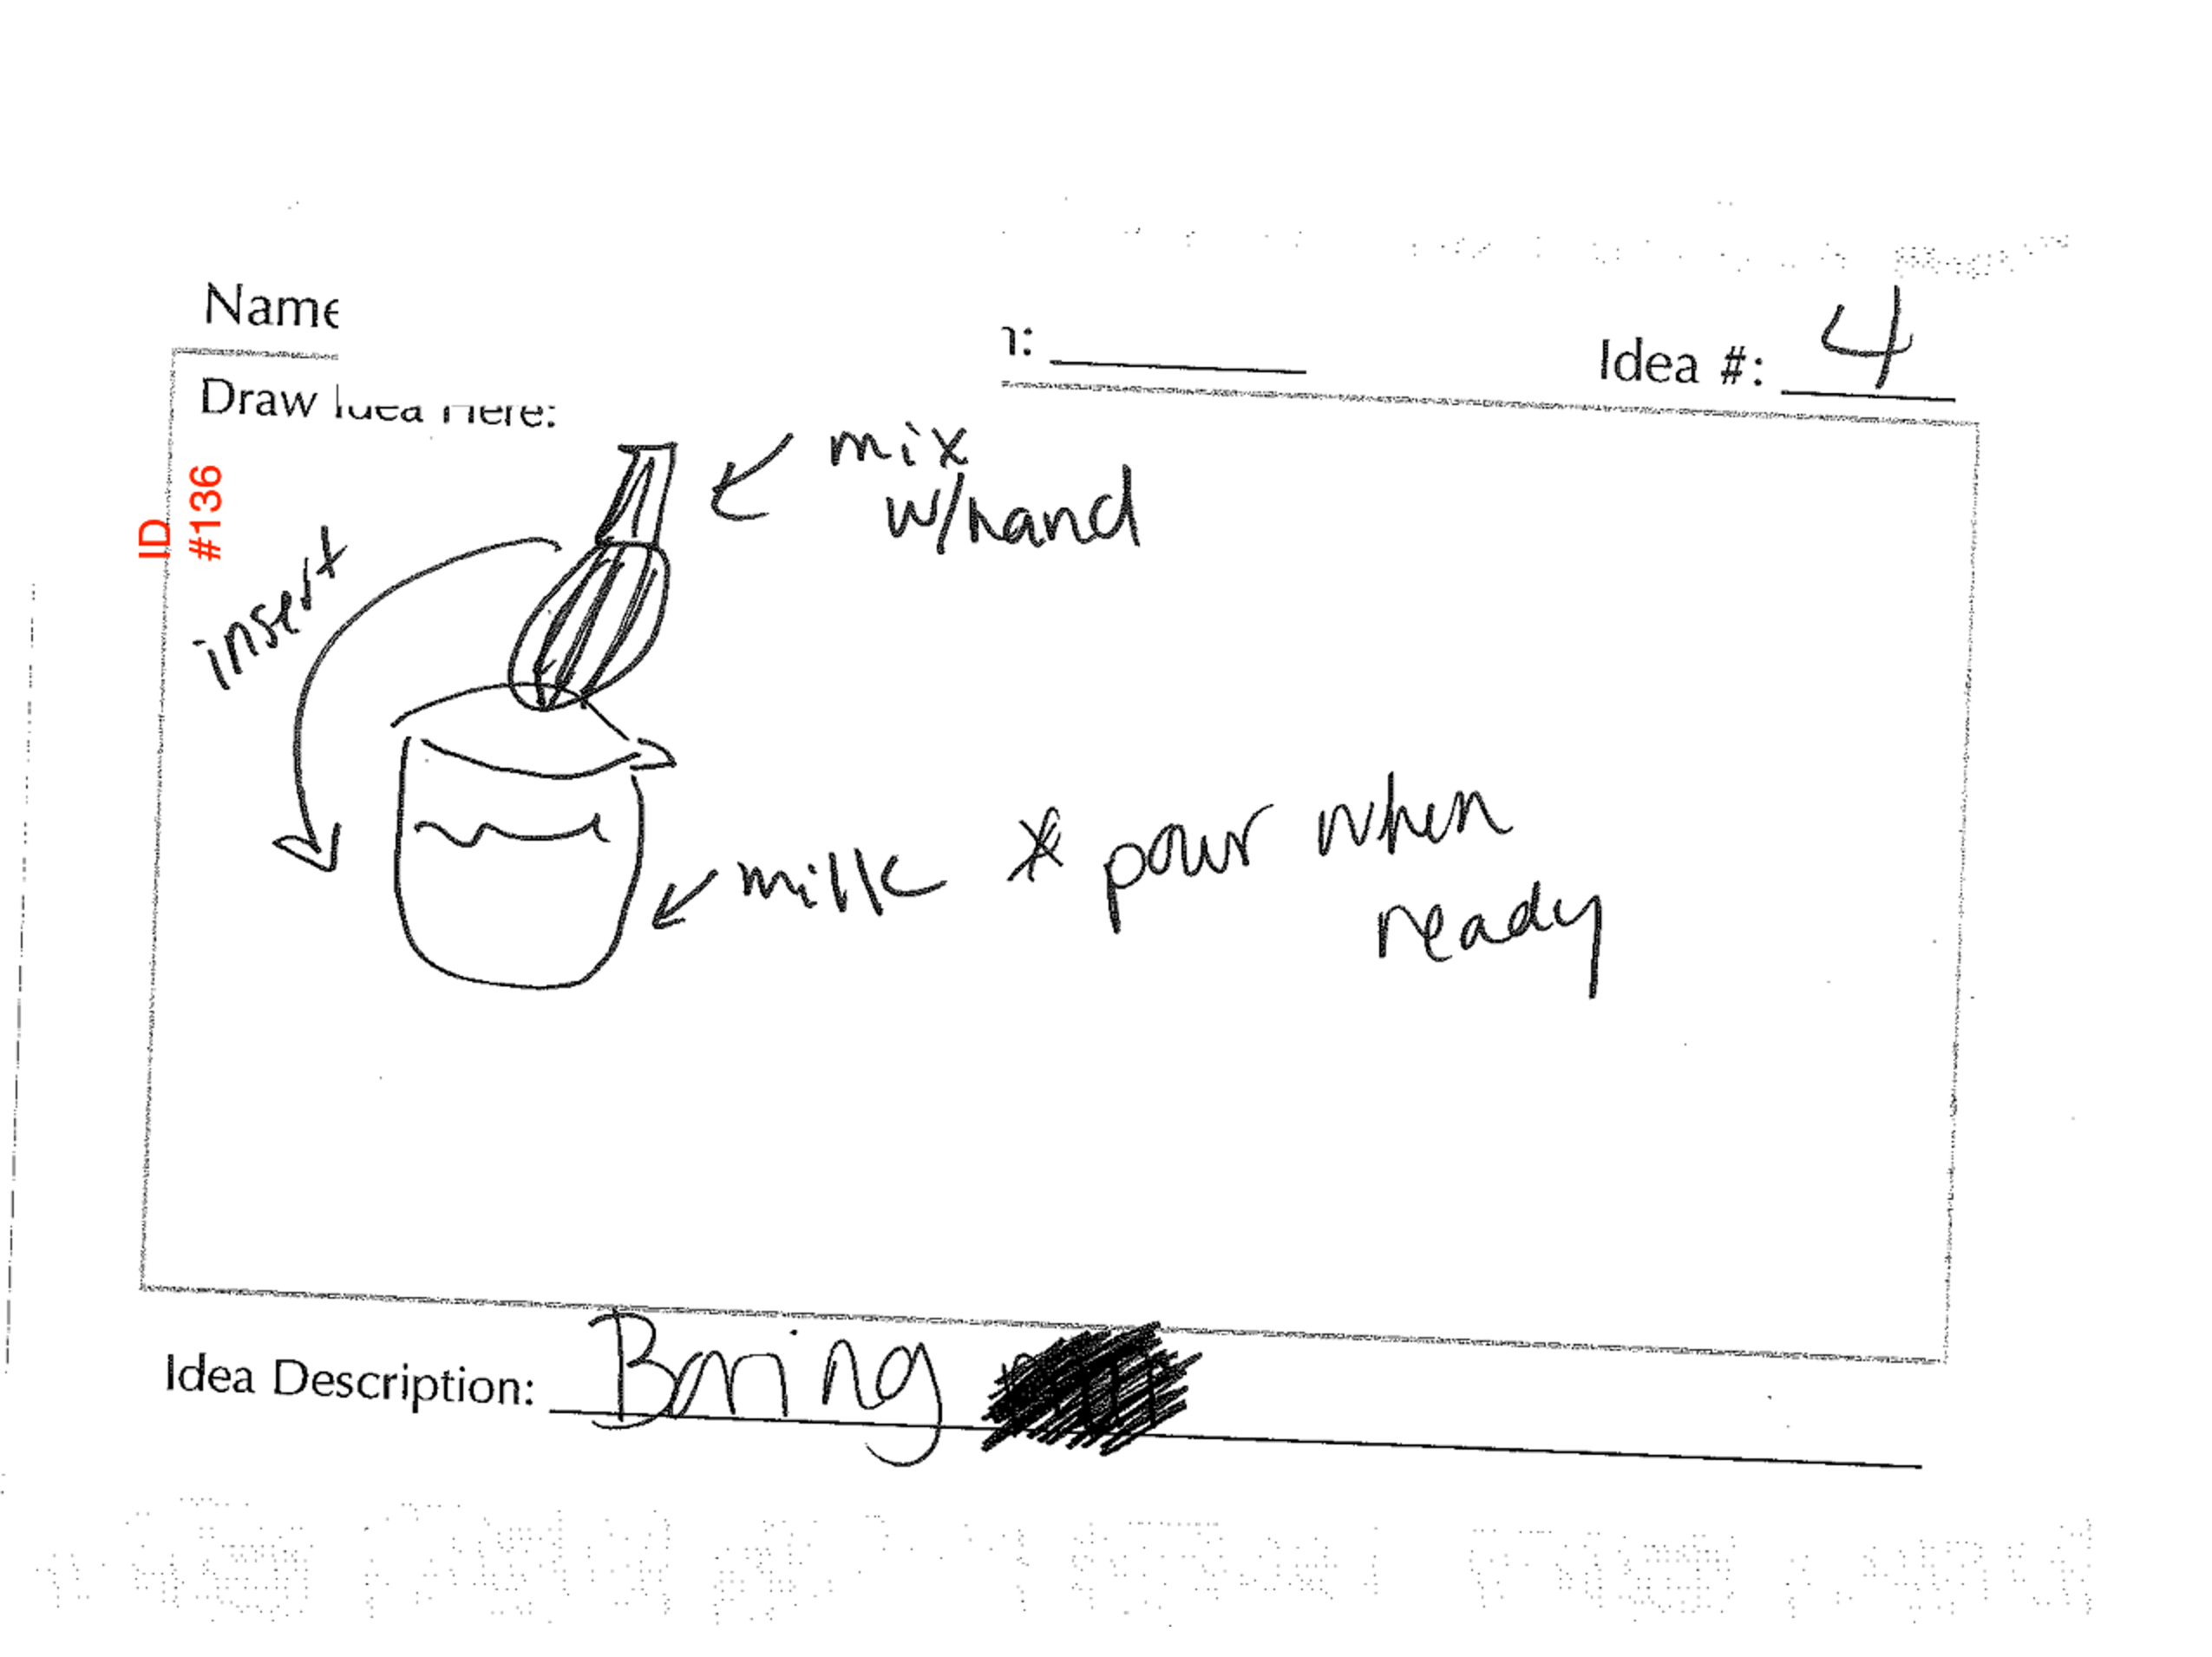 Name
Idea #: 4
Draw Idea Here:
ID
#136
mix
w/hand
insert
milk * pour when
ready
Idea Description: Boring